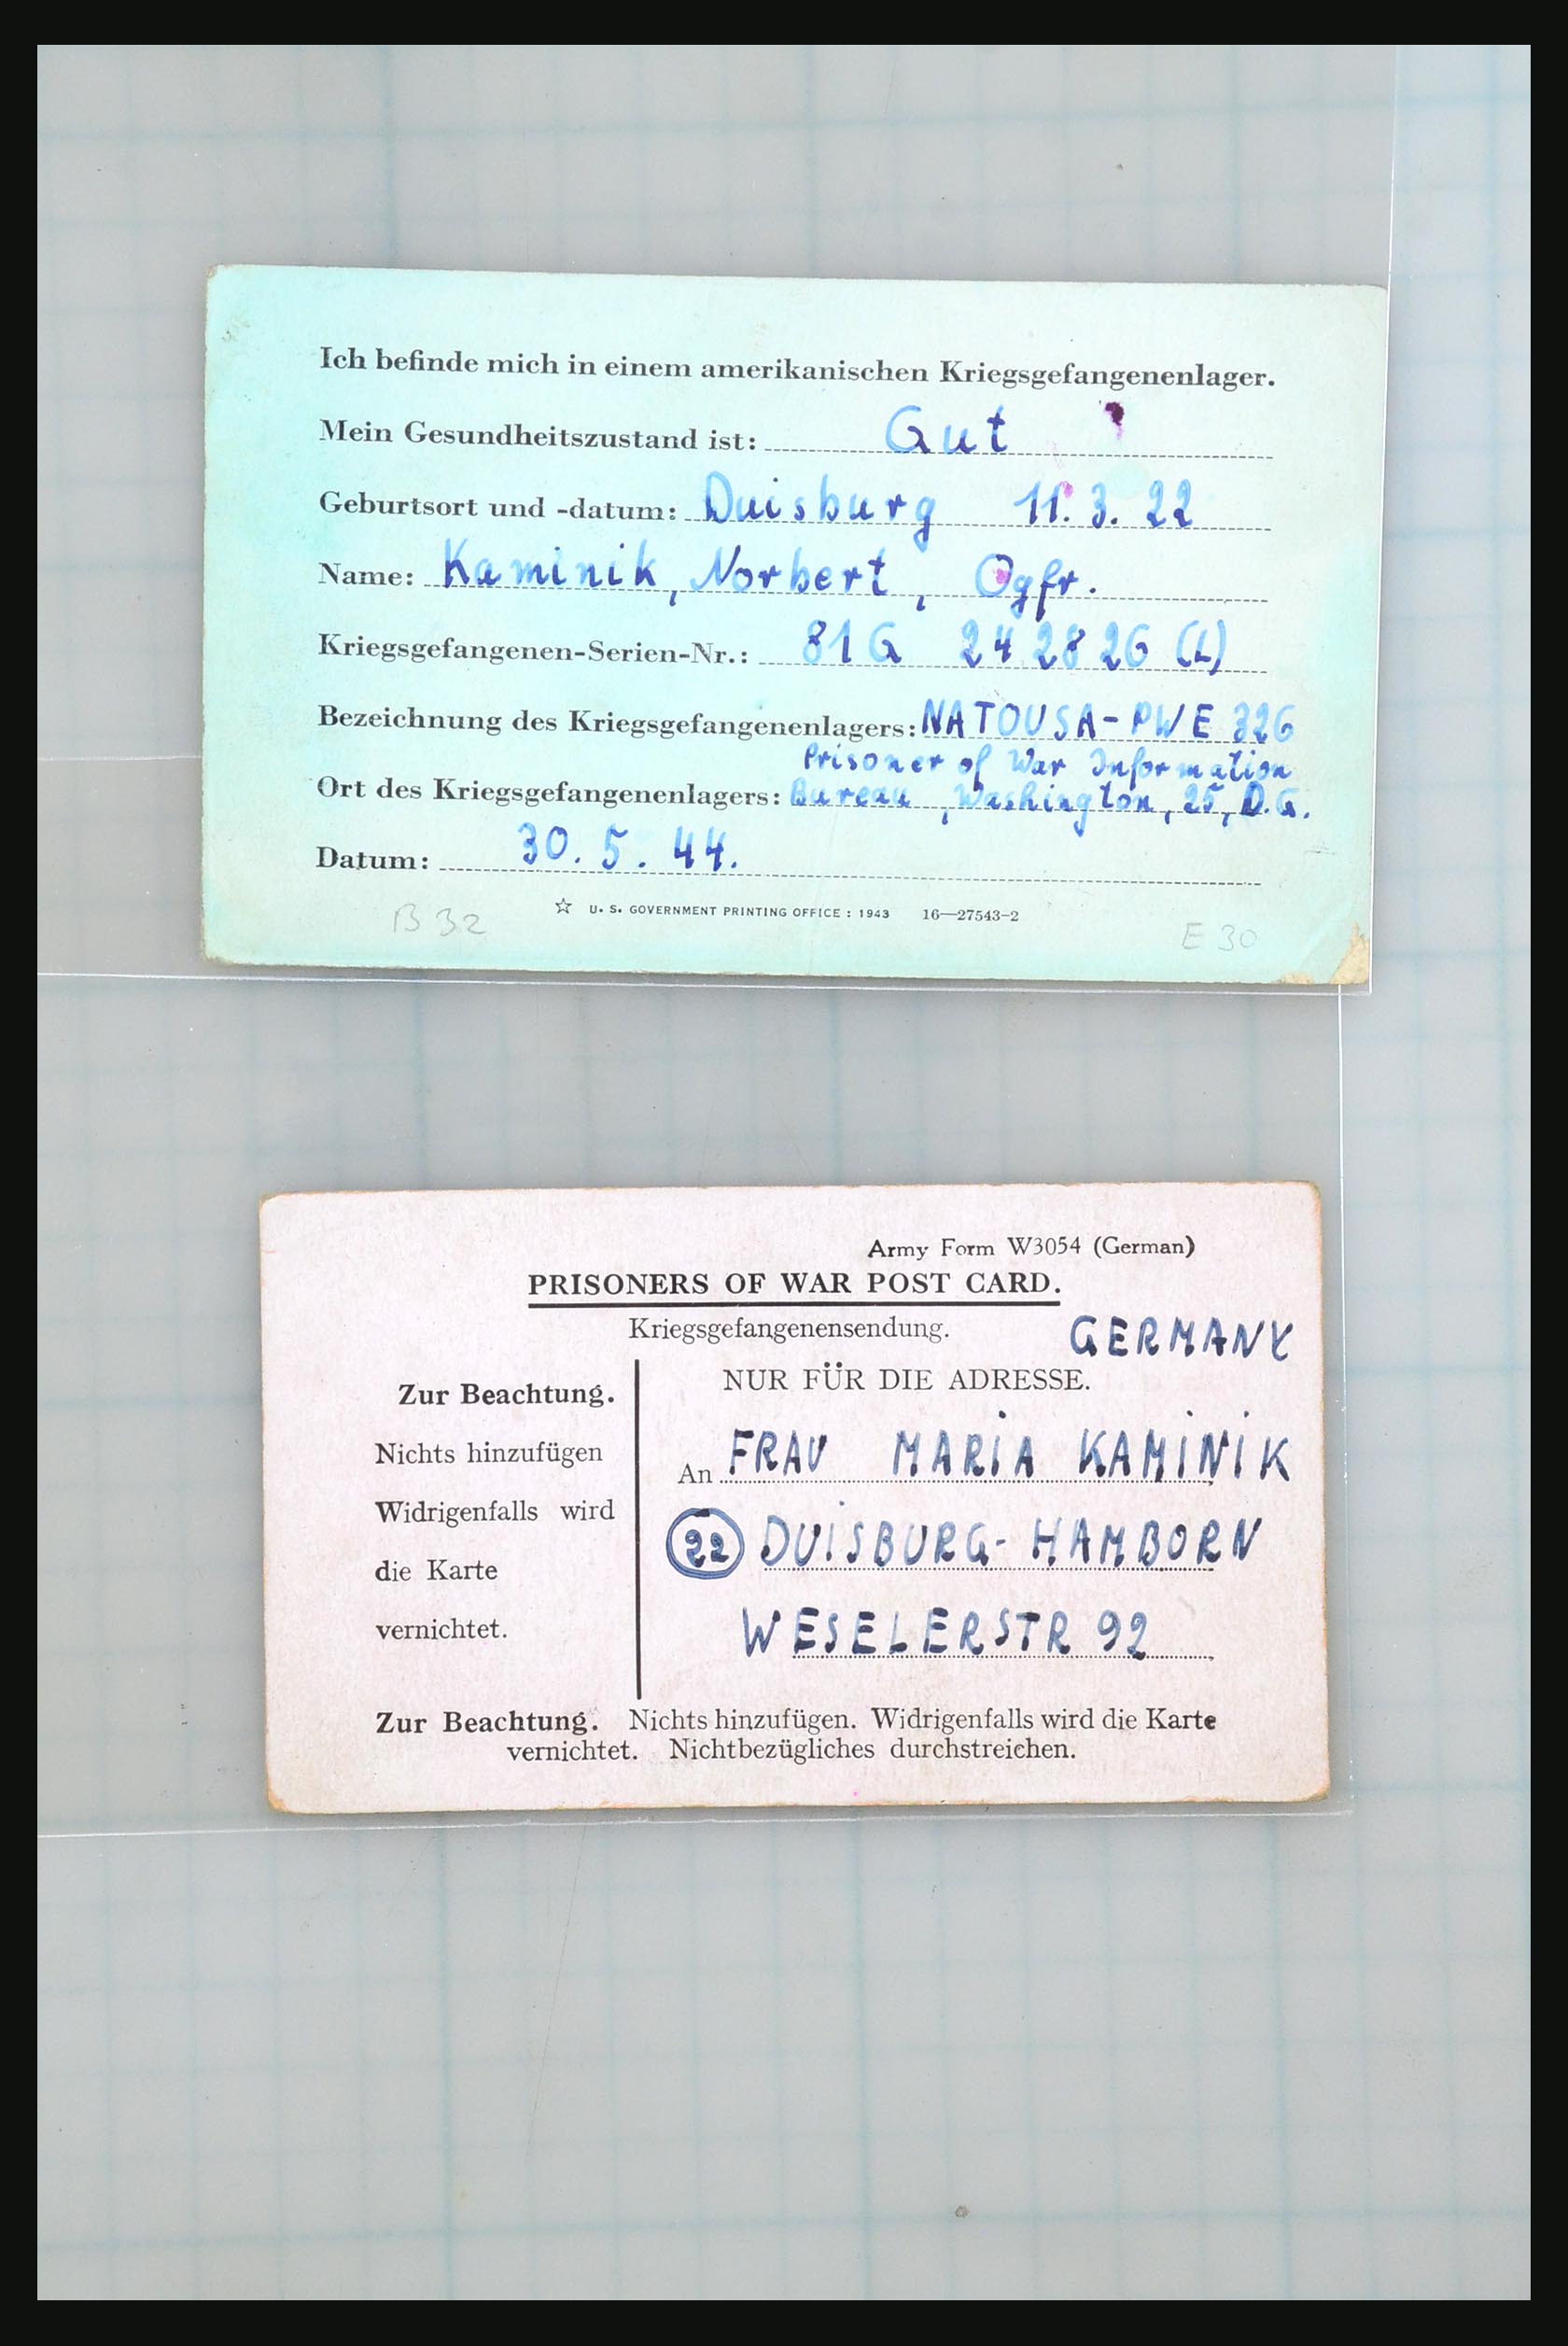 Ich befinde mich in einem amerikanischen Kriegsgefangenenlager.
Mein Gesundheitszustand ist: Gut
Geburtsort und -datum: Duisburg 11. 3. 22
Name: Kaminik, Norbert, Ogfr.
Kriegsgefangenen-Serien-Nr.: 81G 242826 (L)
Bezeichnung des Kriegsgefangenenlagers: NATOUSA-PWE 326
Prisoner of War Information
Ort des Kriegsgefangenenlagers: Bureau, Washington, 25, D.C.
Datum: 30. 5. 44.
☆ U. S. GOVERNMENT PRINTING OFFICE : 1943 16—27543-2
B 32
E 30
Army Form W3054 (German)
PRISONERS OF WAR POST CARD.
Kriegsgefangenensendung.
GERMANY
NUR FÜR DIE ADRESSE.
Zur Beachtung.
Nichts hinzufügen
Widrigenfalls wird
die Karte
vernichtet.
An FRAU MARIA KAMINIK
22 DUISBURG-HAMBORN
WESELERSTR 92
Zur Beachtung. Nichts hinzufügen. Widrigenfalls wird die Karte
vernichtet. Nichtbezügliches durchstreichen.